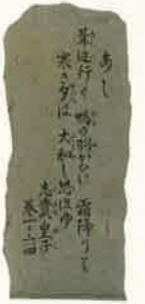 あし
葦辺行く 鴨の羽がひに 霜降りて
寒き夕は 大和し思ほゆ
志貴皇子
巻一・六四